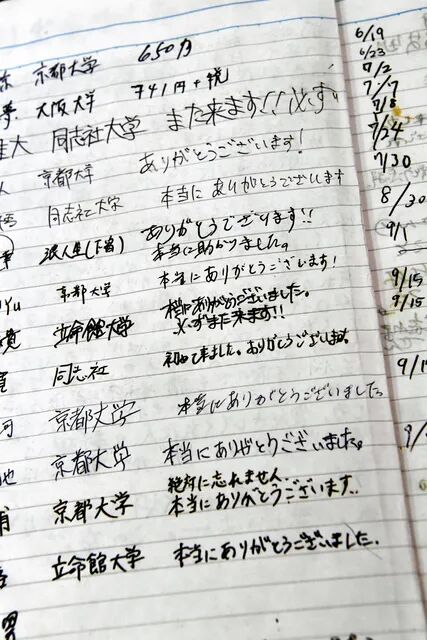 京都大学 650円
大阪大学 741円+税
同志社大学 また来ます!!必ず
京都大学 ありがとうございます!
同志社大学 本当にありがとうございます
浪人生(下宿) ありがとうございます!!
本当に助かりました。
京都大学 本当にありがとうございます!
立命館大学 ありがとうございました。
必ずまた来ます!!
同志社 初めて来ました。ありがとうございます。
京都大学 本当にありがとうございました
京都大学 本当にありがとうございました。
絶対に忘れません
京都大学 本当にありがとうございます。
立命館大学 本当にありがとうございました.
6/19
6/23
7/2
7/7
7/8
7/24
7/30
8/30
9/1
9/15
9/15